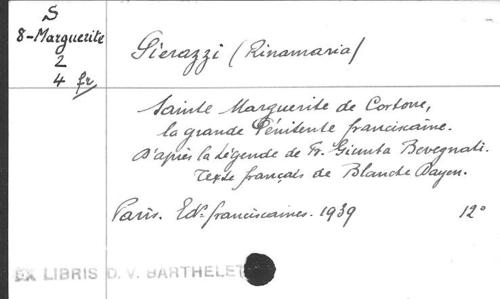 S
8-Marguerite
2
4 fr
Gierazzi (Rinamaria)
Sainte Marguerite de Cortone,
la grande Pénitente franciscaine.
D'après la Légende de Fr. Giunta Bevegnati.
Texte français de Blanche Payen.
Paris. Edns franciscaines. 1939 12°
EX LIBRIS D. V. BARTHELET